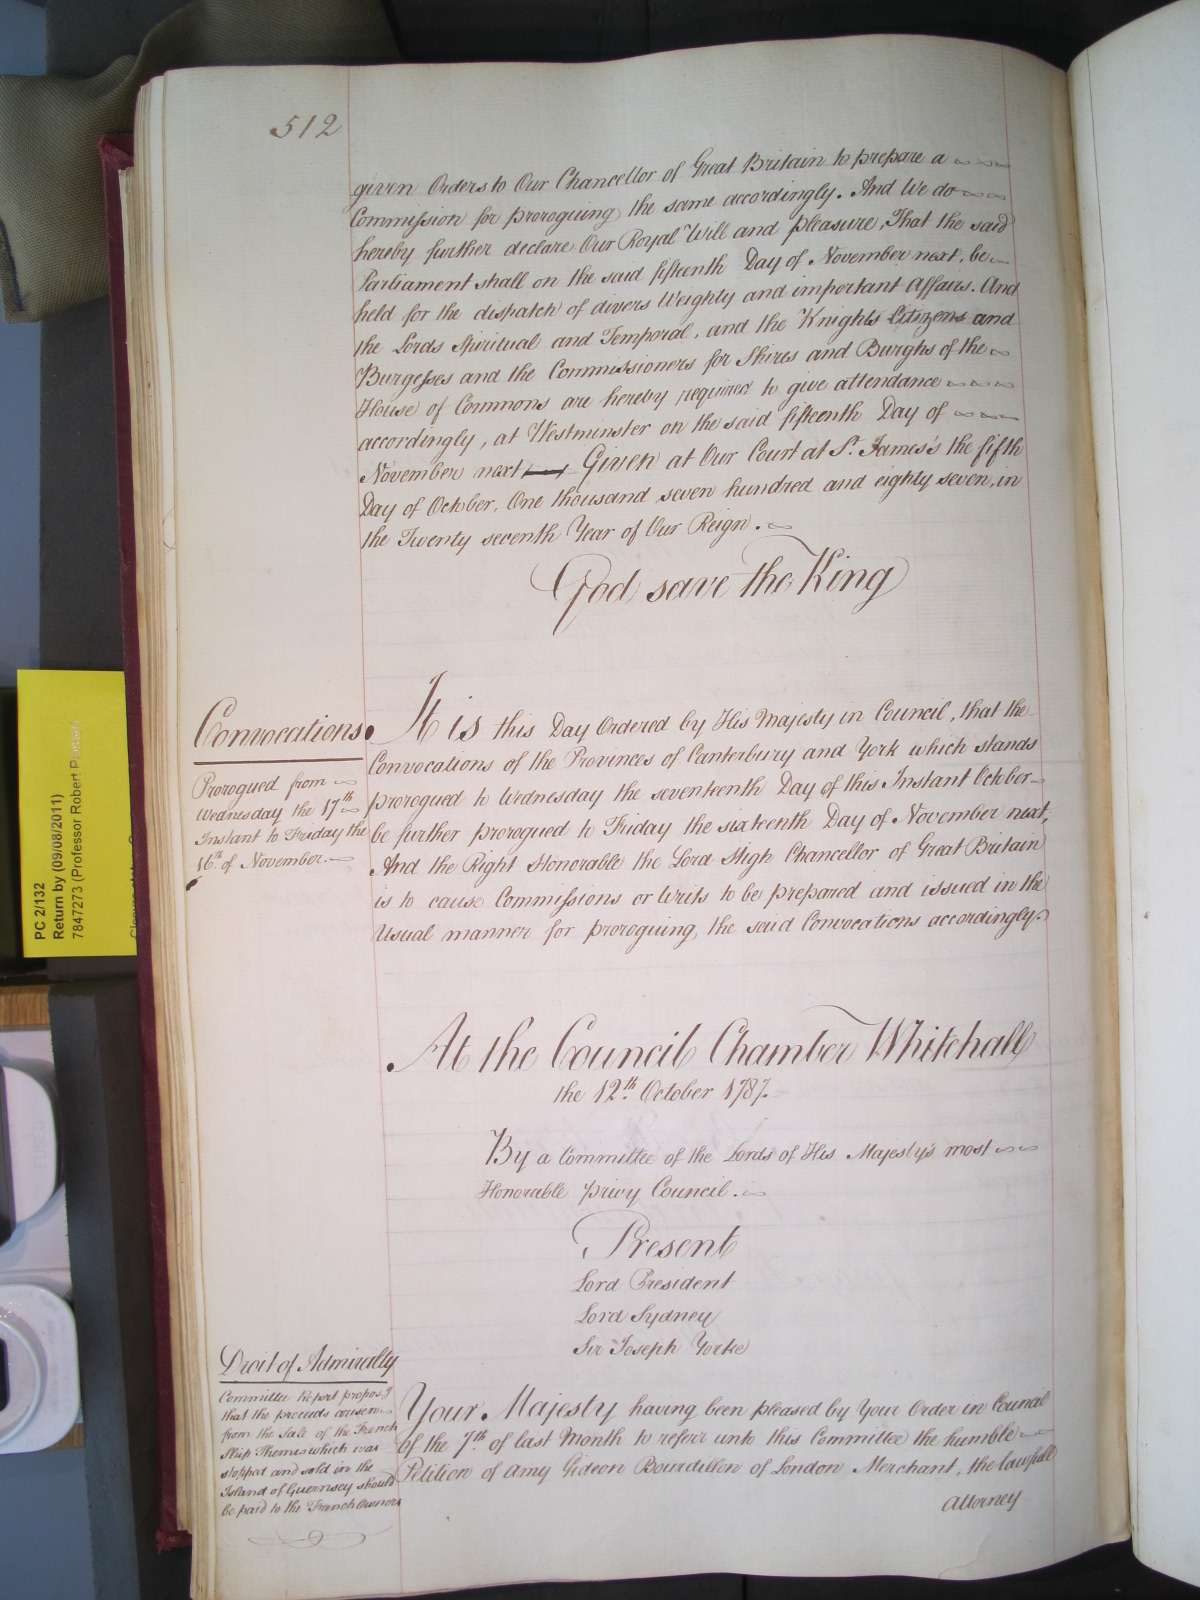 512
given Orders to Our Chancellor of Great Britain to prepare a
Commission for proroguing the same accordingly. And We do
hereby further declare Our Royal Will and pleasure, That the said
Parliament shall on the said fifteenth Day of November next, be
held for the dispatch of divers Weighty and important Affairs. And
the Lords Spiritual and Temporal, and the Knights Citizens and
Burgesses and the Commissioners for Shires and Burghs of the
House of Commons are hereby required to give attendance
accordingly, at Westminster on the said fifteenth Day of
November next Given at Our Court at St. James's the fifth
Day of October, One thousand seven hundred and eighty seven, in
the Twenty seventh Year of Our Reign.
God save the King
Convocations.
Prorogued from
Wednesday the 17th
Instant to Friday the
16th of November.
It is this Day Ordered by His Majesty in Council, that the
Convocations of the Provinces of Canterbury and York which stands
prorogued to Wednesday the seventeenth Day of this Instant October
be further prorogued to Friday the sixteenth Day of November next,
And the Right Honorable the Lord High Chancellor of Great Britain
is to cause Commissions or Writs to be prepared and issued in the
Usual manner for proroguing the said Convocations accordingly.
At the Council Chamber Whitehall
the 12th October 1787.
By a Committee of the Lords of His Majesty's most
Honorable privy Council.
Present
Lord President
Lord Sydney
Sir Joseph Yorke
Droit of Admiralty
Committee Report proposg
that the proceeds arisen
from the Sale of the French
Ship Themis which was
stopped and sold in the
Island of Guernsey should
be paid to the French Owners
Your Majesty having been pleased by Your Order in Council
of the 7th of last Month to referr unto this Committee the humble
Petition of Amy Gideon Bourdillon of London Merchant, the lawfull
Attorney
PC 2/132
Return by (09/08/2011)
7847273 (Professor Robert